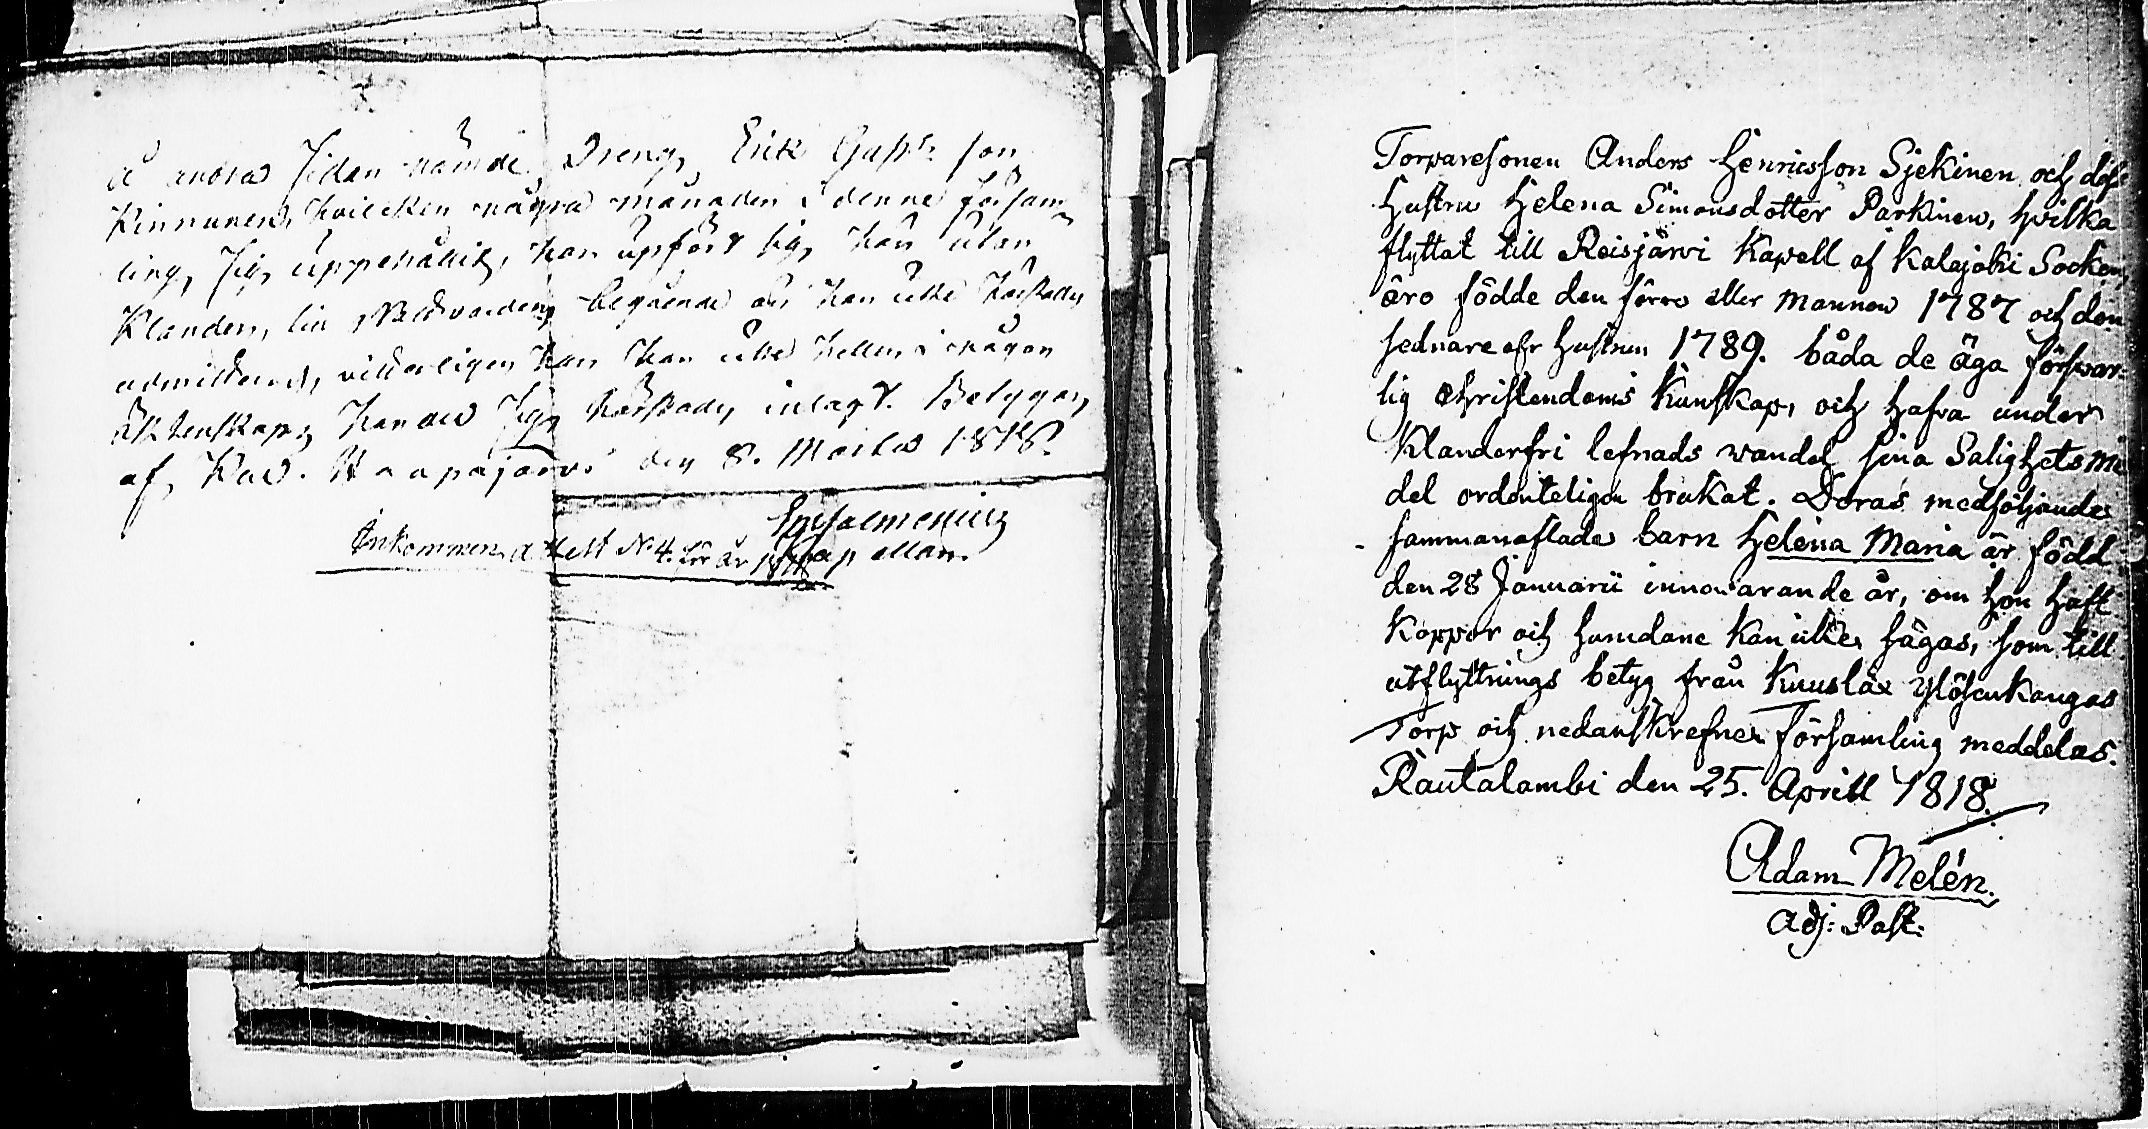 å andra sidan nämde Dreng, Erik Gust: son
Kinnunen, hvilcken några månader i denne församm
ling, sig uppehållit, har upfört sig, här utan
Klander, lin Nattvarden, begående är han icke härstädes
admitterad, vitterligen har han icke heller i någon
Äktenskaps handel sig härstädes inlagt. Betygas
af, Rev. Haapajärvi den 8. Martii 1818.
Salmenius
Kapellan.
Inkommen attest N 4. för år 1818
Torparesonen Anders Henricsson Sjekinen och dess
Hustru Helena Simonsdotter Parkinen, hvilka
flyttat till Reisjärvi Kapell af Kalajoki Socken,
äro födde den förre eller Mannen 1787 och den
sednare elr Hustrun 1789. båda de äga försvar-
lig Christendoms Kunskap, och hafva under
Klanderfri lefnads wandel sina Salighets me
del ordenteligen brukat. Deras medföljande
sammanaflade barn Helena Maria är född
den 28 Januarii innevarande år, om hon haft
Koppor och humdane kan icke sägas, som till
utflyttnings betyg från Kuuslax Ylösenkangas
Torp och nedanskrefne Församling meddelas.
Rautalambi den 25. Aprill 1818.
Adam Melén.
Adj: Past: